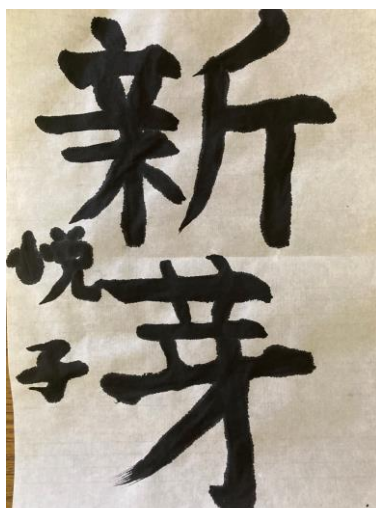 新芽
悦子